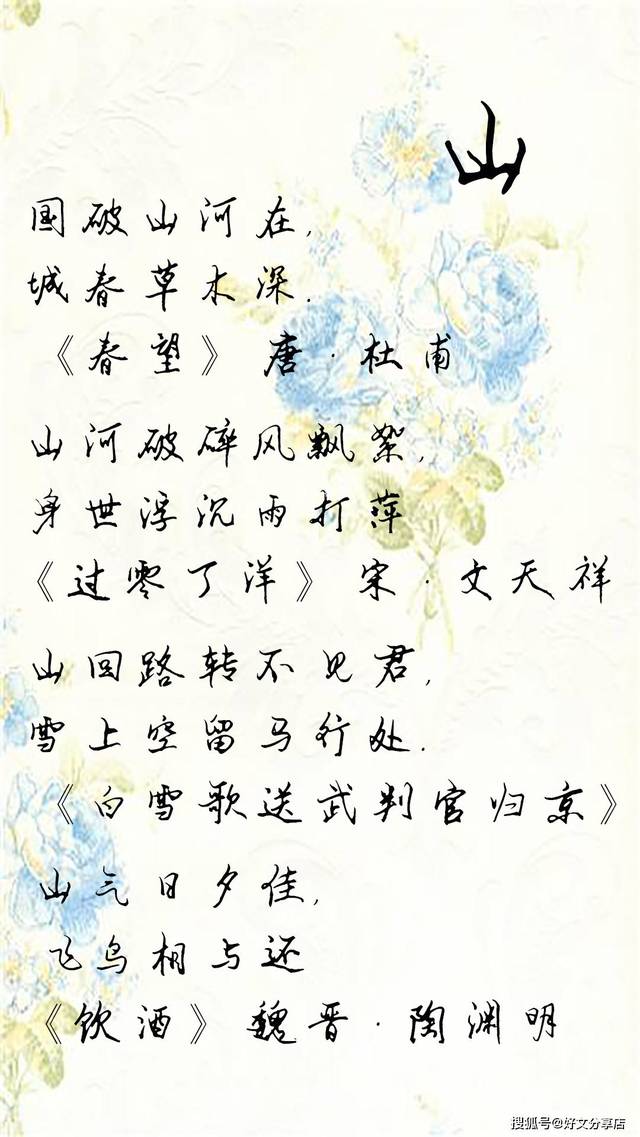 山
国破山河在,
城春草木深.
《春望》 唐·杜甫
山河破碎风飘絮,
身世浮沉雨打萍
《过零丁洋》 宋·文天祥
山回路转不见君,
雪上空留马行处.
《白雪歌送武判官归京》
山气日夕佳,
飞鸟相与还
《饮酒》 魏晋·陶渊明
搜狐号@好文分享店